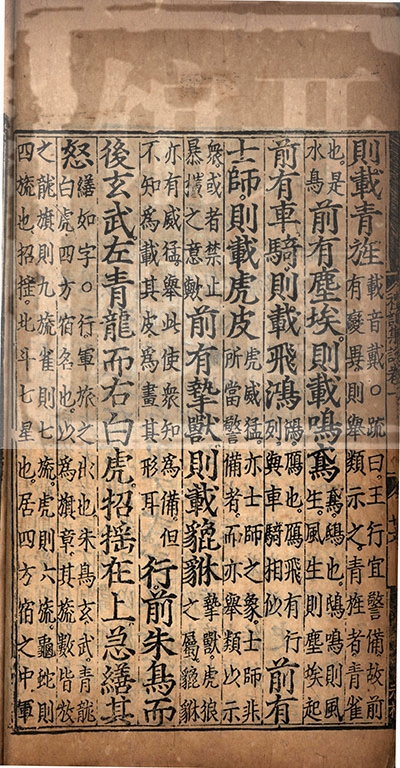 則載青旌載音戴○疏曰王行宜警備故前有變異則舉類示之青旌者青雀
也是水鳥前有塵埃則載鳴鳶鳶鴟也鴟鳴則風生風生則塵埃起
前有車騎則載飛鴻鴻鴈也鴈飛有行列與車騎相似前有
士師則載虎皮虎威猛亦士師之象士師非所當警備者而亦舉類以示
衆或者禁止暴横之意歟前有摯獸則載貔貅摯獸虎狼之屬貔貅
亦有威猛舉此使衆知爲備但不知爲載其皮爲畫其形耳行前朱鳥而
後玄武左青龍而右白虎招揺在上急繕其
怒繕如字○行軍旅之出也朱鳥玄武青龍白虎四方宿名也以爲旗章其旒數皆放
之龍旗則九旒雀則七旒虎則六旒龜蛇則四旒也招揺北斗七星也居四方宿之中軍